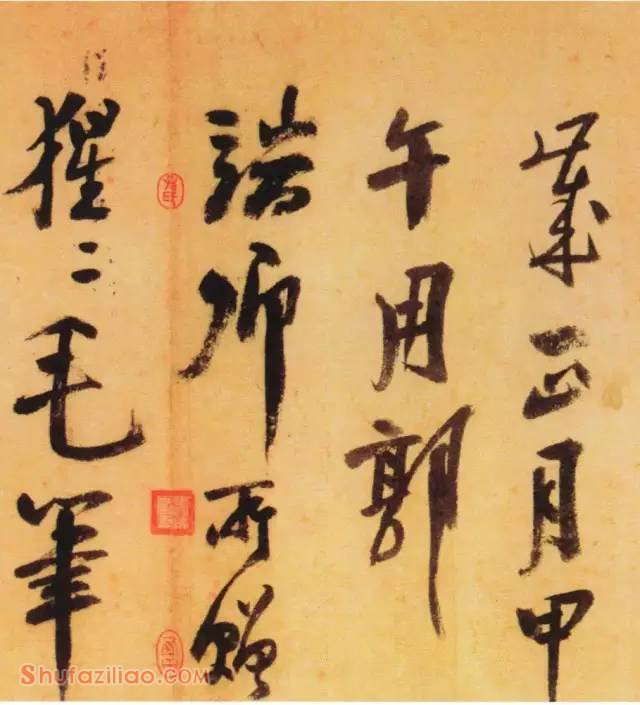 歲正月甲
午用郭
端卿所贈
猩〻毛筆
Shufaziliao.com